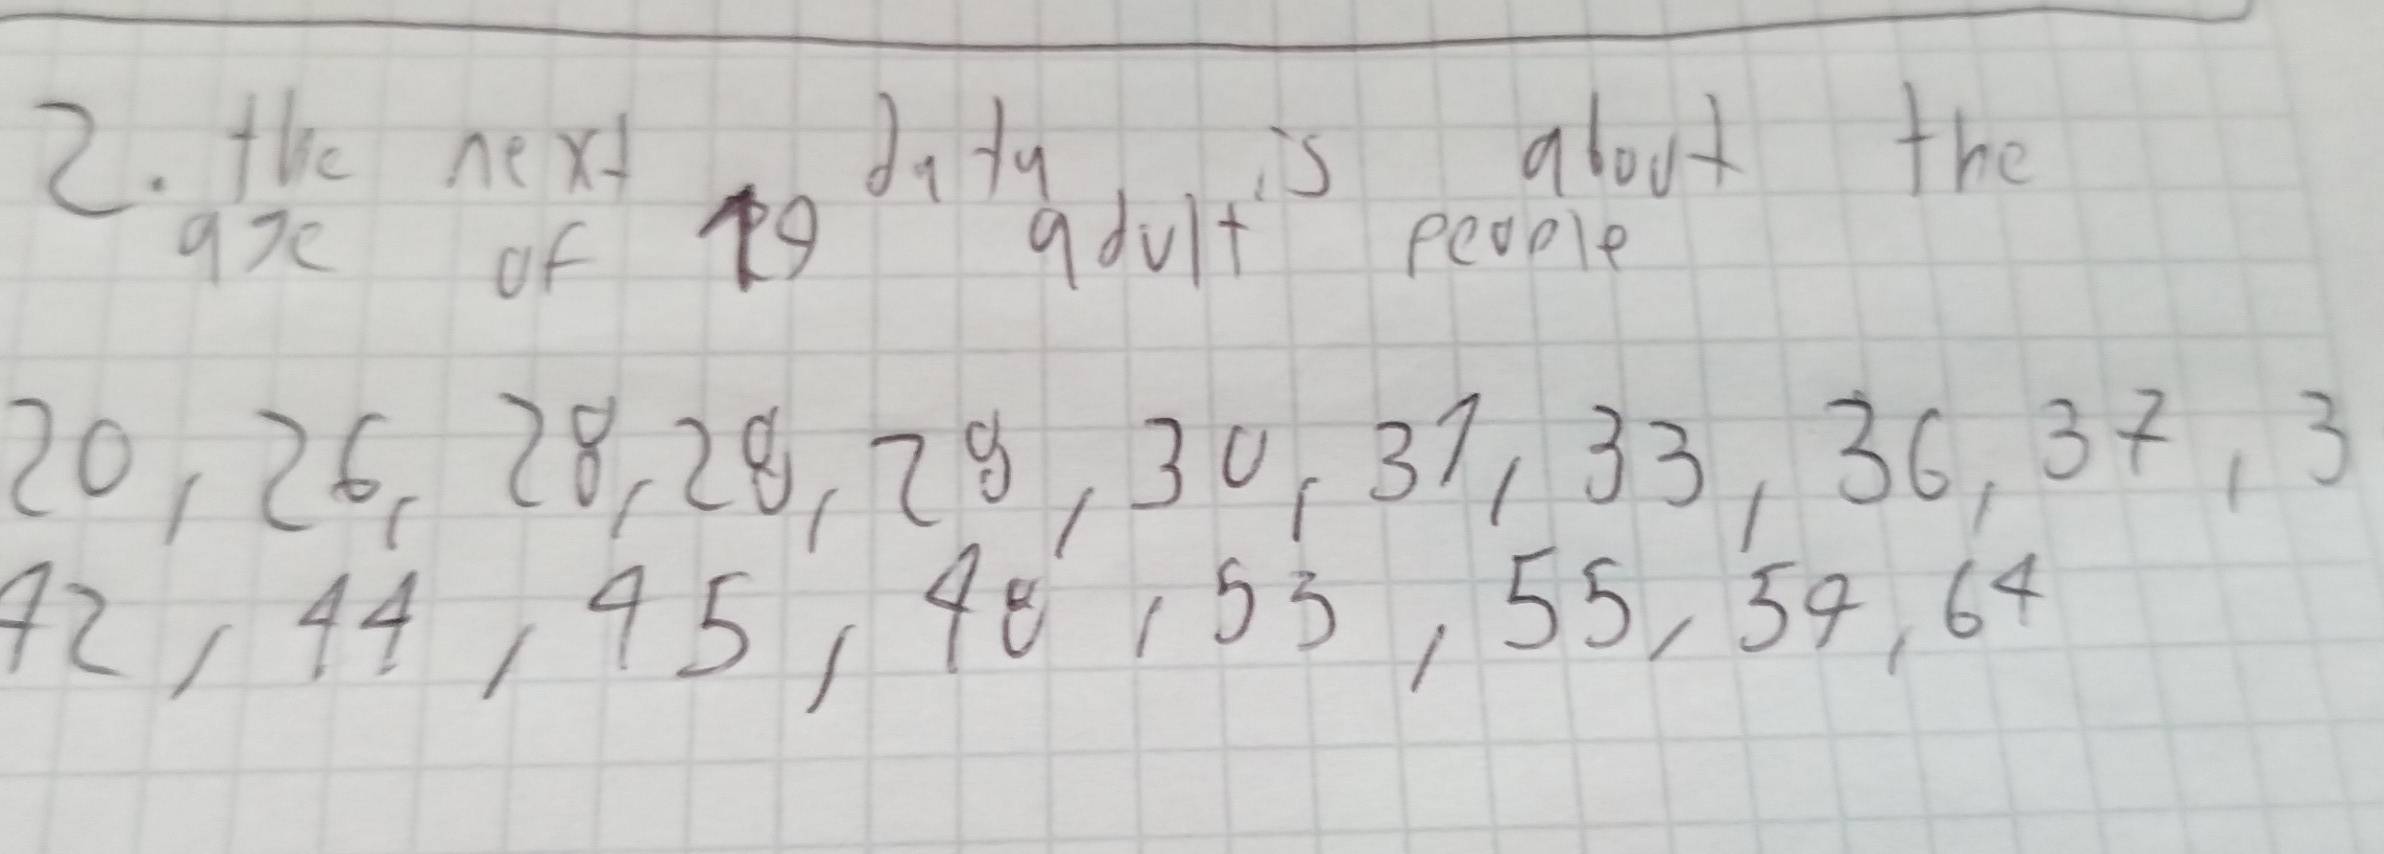 2. the next data is about the
age of 19 adult people
20, 26, 28, 28, 28, 30, 31, 33, 36, 37, 3
42, 44, 45, 48, 53, 55, 59, 64